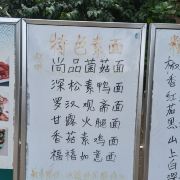 特色素面
尚品菌菇面
深松素鸭面
罗汉观斋面
甘露火腿面
香菇素鸡面
福禧如意面
椒
香
红
茄
黑
山
上